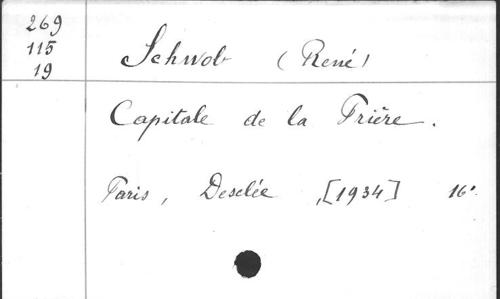 269
115
19
Schwob (René)
Capitale de la Prière.
Paris, Desclée, [1934] 16°